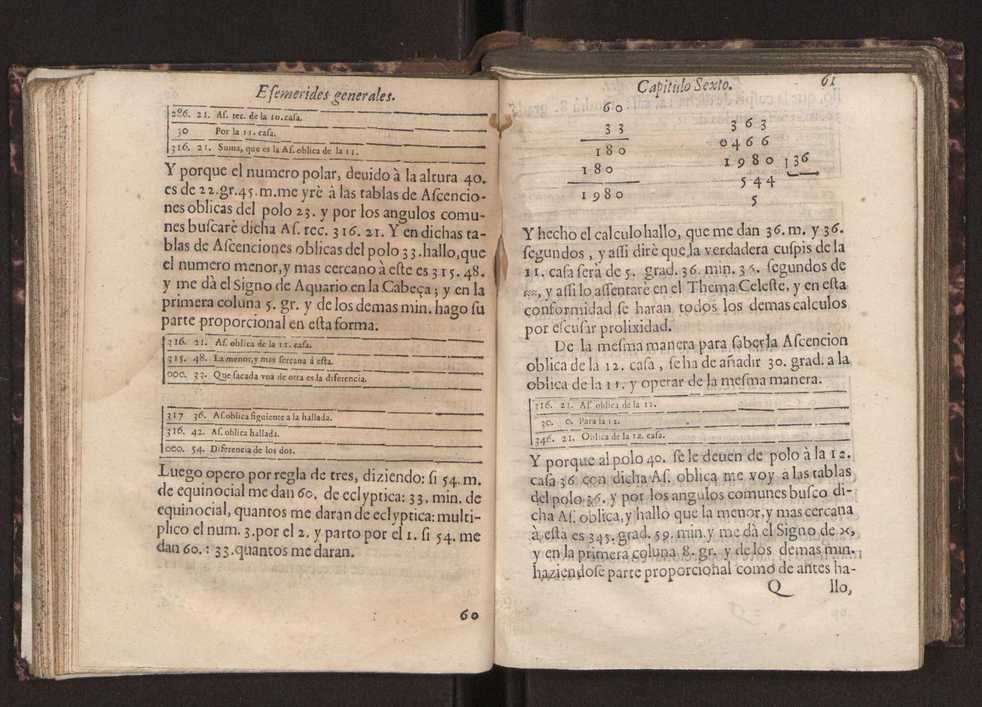 Eſemerides generales.
286. 21. Aſ. rec. de la 10. caſa.
30 Por la 11. caſa.
316. 21. Suma, que es la Aſ. oblica de la 11.
Y porque el numero polar, deuido à la altura 40.
es de 22. gr. 45. m. me yrè à las tablas de Aſcencio-
nes oblicas del polo 23. y por los angulos comu-
nes buſcarè dicha Aſ. rec. 316. 21. Y en dichas ta-
blas de Aſcenciones oblicas del polo 33. hallo, que
el numero menor, y mas cercano à eſte es 315. 48.
y me dà el Signo de Aquario en la Cabeça; y en la
primera coluna 5. gr. y de los demas min. hago ſu
parte proporcional en eſta forma.
316. 21. Aſ. oblica de la 11. caſa.
315. 48. La menor, y mas ſercana à eſta.
000. 33. Que ſacada vna de otra es la diferencia.
317 36. Aſ. oblica ſiguiente a la hallada.
316. 42. Aſ. oblica hallada.
000. 54. Diferencia de los dos.
Luego opero por regla de tres, diziendo: ſi 54. m.
de equinocial me dan 60. de eclyptica: 33. min. de
equinocial, quantos me daran de eclyptica: multi-
plico el num. 3. por el 2. y parto por el 1. ſi 54. me
dan 60. : 33. quantos me daran.
60
Capitulo Sexto. 61
60
33
180
180
1980
363
0466
1980 | 36
544
5
Y hecho el calculo hallo, que me dan 36. m. y 36.
ſegundos, y aſſi dirè que la verdadera cuſpis de la
11. caſa ſerà de 5. grad. 36. min. 36. ſegundos de
♒, y aſſi lo aſſentarè en el Thema Celeſte, y en eſta
conformidad ſe haran todos los demas calculos
por eſcuſar prolixidad.
De la meſma manera para ſaber la Aſcencion
oblica de la 12. caſa, ſe ha de añadir 30. grad. a la
oblica de la 11. y operar de la meſma manera.
316. 21. Aſ. oblica de la 11.
30. 0. Para la 12.
346. 21. Oblica de la 12. caſa.
Y porque al polo 40. ſe le deuen de polo à la 12.
caſa 36. con dicha Aſ. oblica me voy a las tablas
del polo 36. y por los angulos comunes buſco di-
cha Aſ. oblica, y hallo que la menor, y mas cercana
à eſta es 345. grad. 59. min. y me dà el Signo de ♓,
y en la primera coluna 8. gr. y de los demas min.
haziendoſe parte proporcional como de antes ha-
Q llo,